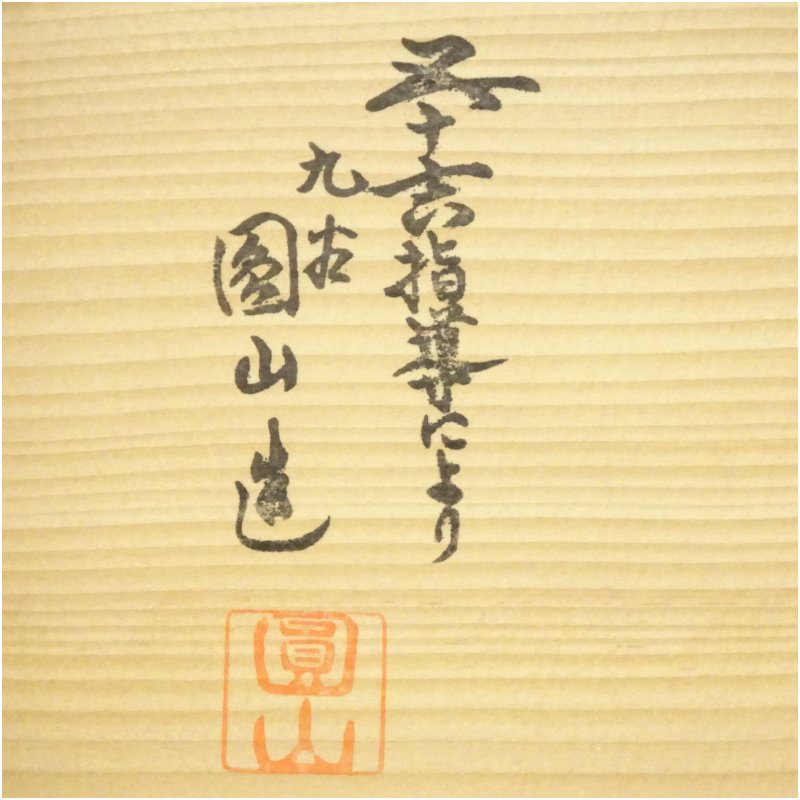 五十吉指導により
九谷
圓山造
圓山